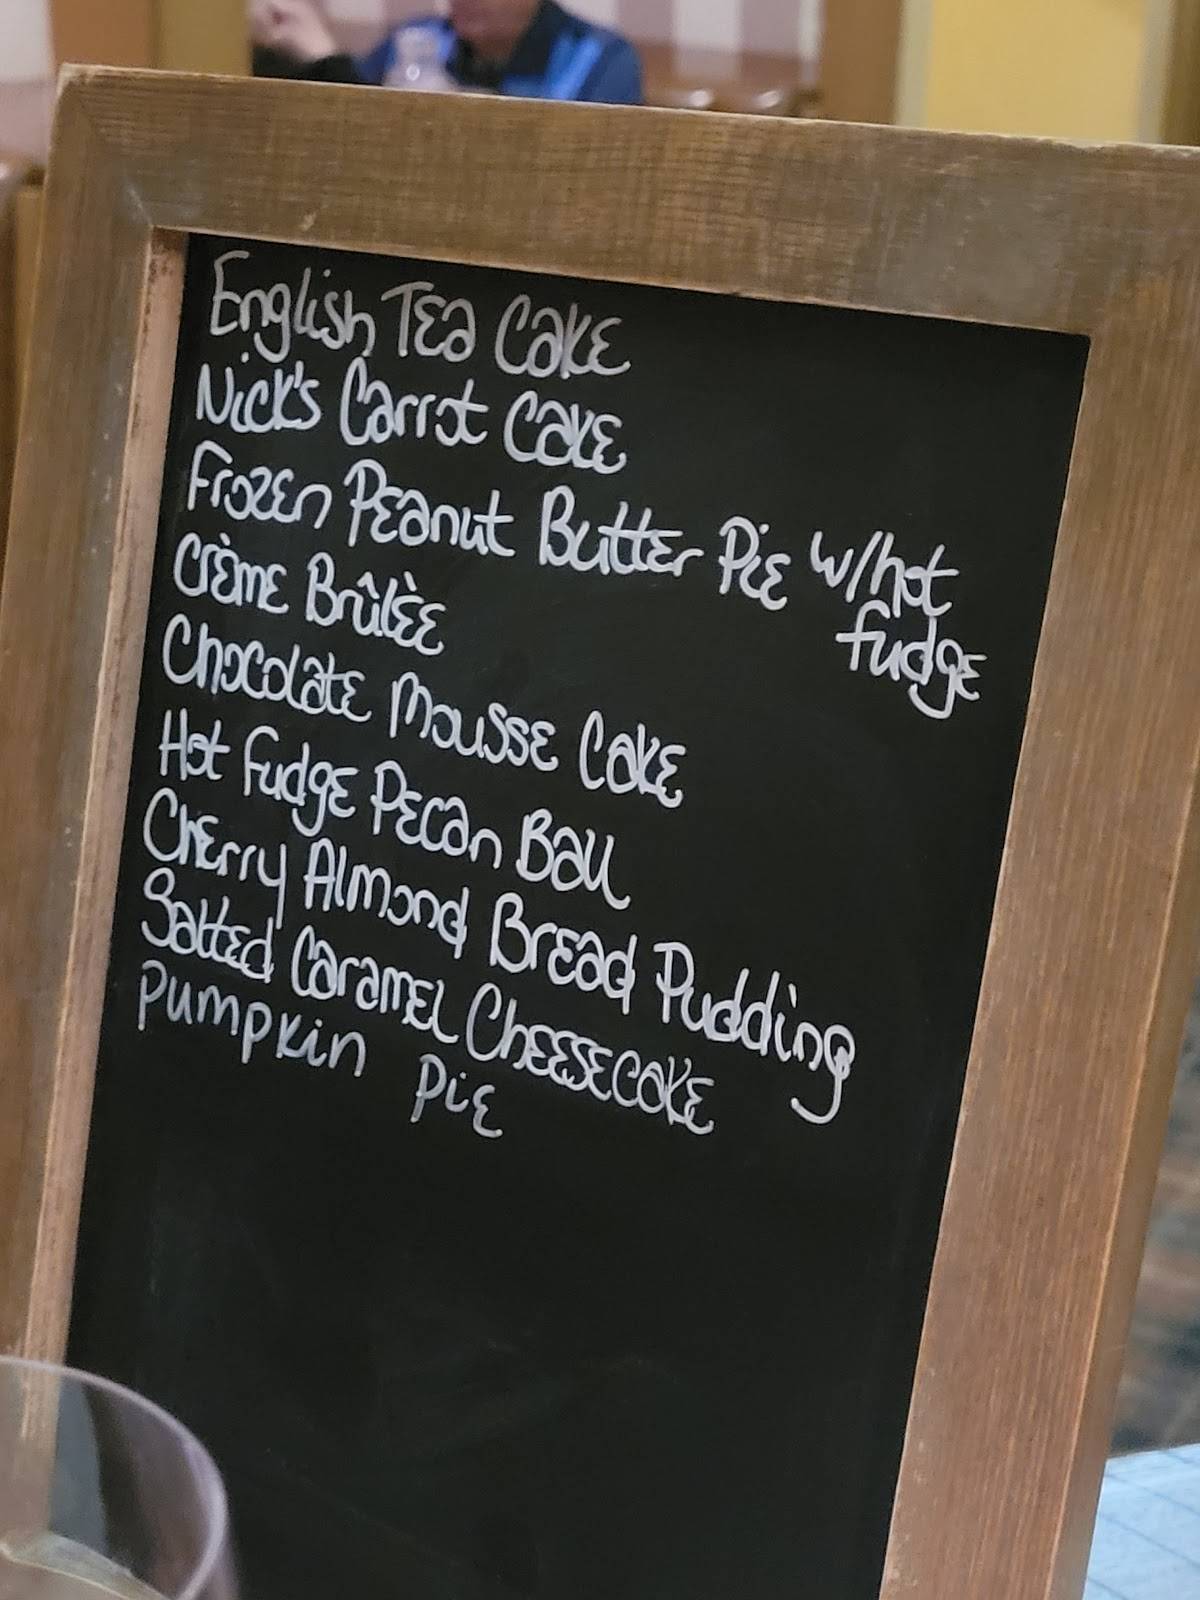 English Tea Cake
Nick's Carrot Cake
Frozen Peanut Butter Pie w/hot
fudge
Crème Brûlèe
Chocolate Mousse Cake
Hot Fudge Pecan Ball
Cherry Almond Bread Pudding
Salted Caramel Cheesecake
Pumpkin Pie